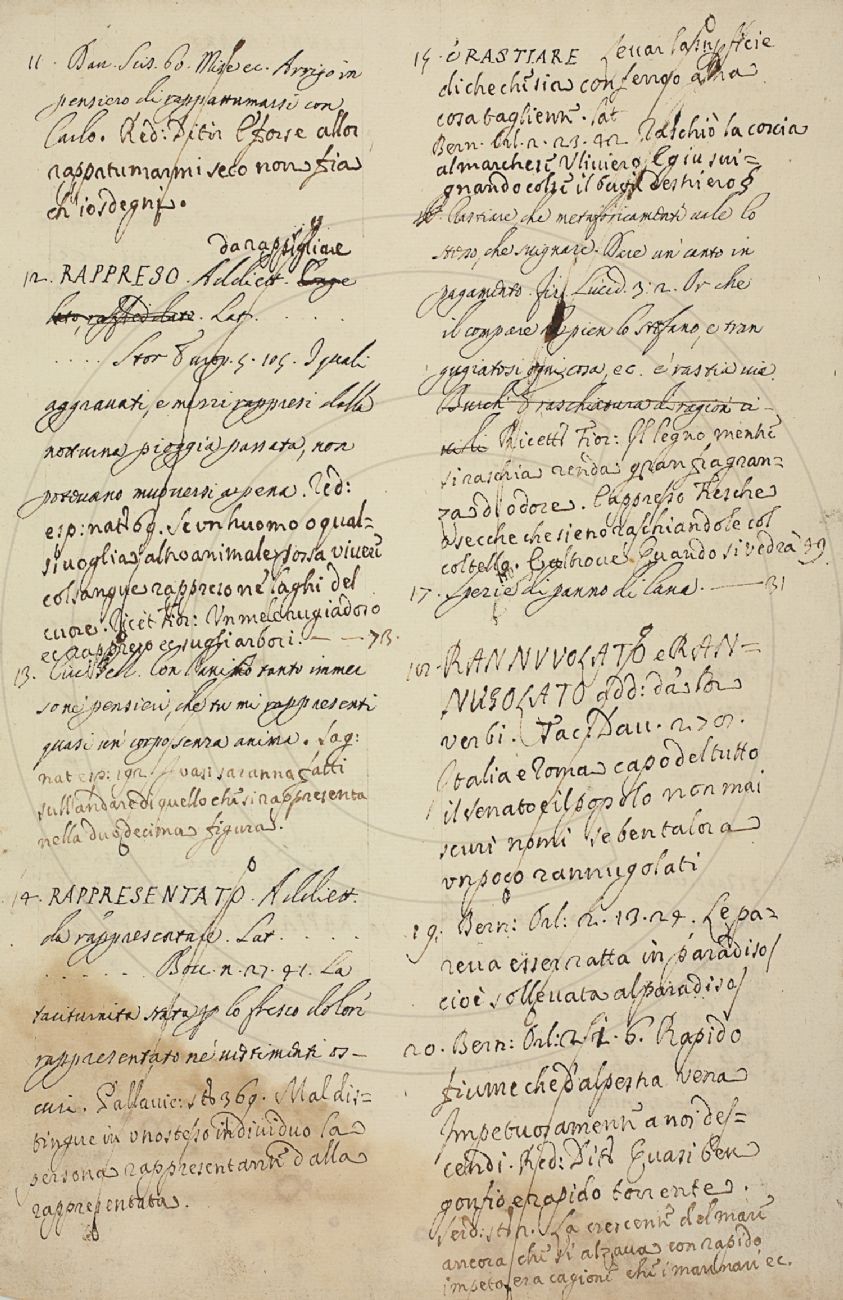 11. Dav. Scis. 60. Mise ec. Arrigo in
pensiero di rappattumarsi con
Carlo. Red: Ditir E forse allor
rappatumarmi seco non fia
ch'io sdegni.
da rappigliare
12. RAPPRESO. Addiett.
Lat. . . . . .
. . . . Stor Europ. 5. 105. I quali
aggravati, e mezzi rappresi dalla
notturna pioggia passata, non
potevano muoversi appena. Red:
esp: nat: 69. Se un huomo o qual=
sivoglia altro animale possa vivere
col sangue rappreso ne laghi del
cuore. Ricet Fior: Un mele rugiadoso
ec rappreso ec sugli arbori. — — 73.
13. Con l'animo tanto immer
so ne' pensieri, che tu mi rappresenti
quasi un' corpo senza anima. Sag:
nat esp: 192. I vasi saranno fatti
sull'andare di quello che si rappresenta
nella duodecima figura.
14. RAPPRESENTATO. Addiett.
da rappresentare. Lat. . . . .
. . . . . . Bocc. n. 27. 41. La
taciturnità stata per lo fresco dolore
rappresentato ne' vestimenti os-
curi. Pallavic: 369. Mal dis=
tingue in uno stesso individuo la
persona rappresentante dalla
rappresentata.
15. è RASTIARE Levar la superficie
di che che sia con ferro o altra
cosa tagliente. Lat
Bern. Orl. 2. 23. 42 Raschiò la coscia
al marchese Uliviero, E giù svi=
gnando colse il
Rastiare che metaforicamente vale lo
stesso, che svignare. Dare un' canto in
pagamento. Fir. Lucid. 3. 2. Or che
il compare ripien lo stefano, e tran
gugiatosi ogni cosa, ec. è rastia via
Burch. E raschiatura di ragion ci-
vili Ricett Fior: Il legno mentre
si raschia renda gran fragran=
za di odore. E appresso Fresche
o secche che sieno raschiandole col
coltello. E altrove Quando si vedrà 99.
17. Spezie di panno di lana. —— 31
18. RANNUVOLATO e RAN=
NUGOLATO add: da lor
verbi. Tac. Dav. 2. 707.
Italia e Roma capo del tutto
il senato e il popolo non mai
scuri nomi se ben talora
un poco rannugolati
19. Bern: Orl: 2. 13. 24. Le pa=
reva esser ratta in paradiso/
cioè sollevata al paradiso/
20. Bern: Orl: 6. Rapido
fiume che d'alpestra vena
Impetuosamente a noi des=
cendi. Red: Dit: Quasi ben
gonfio e rapido torrente.
La crescente del mare
ancora che si alzava con rapido
impeto, era cagione che i marinari ec.